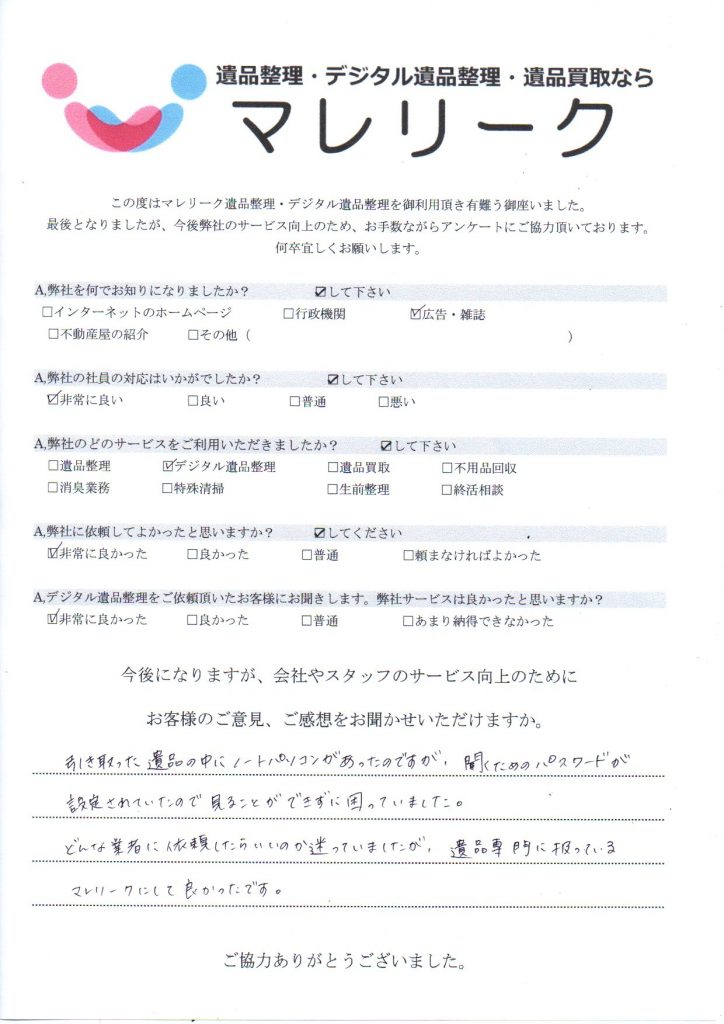 遺品整理・デジタル遺品整理・遺品買取なら
マレリーク
この度はマレリーク遺品整理・デジタル遺品整理を御利用頂き有難う御座いました。
最後となりましたが、今後弊社のサービス向上のため、お手数ながらアンケートにご協力頂いております。
何卒宜しくお願いします。
A,弊社を何でお知りになりましたか？ ☑して下さい
☐インターネットのホームページ ☐行政機関 ☑広告・雑誌
☐不動産屋の紹介 ☐その他（ ）
A,弊社の社員の対応はいかがでしたか？ ☑して下さい
☑非常に良い ☐良い ☐普通 ☐悪い
A,弊社のどのサービスをご利用いただきましたか？ ☑して下さい
☐遺品整理 ☑デジタル遺品整理 ☐遺品買取 ☐不用品回収
☐消臭業務 ☐特殊清掃 ☐生前整理 ☐終活相談
A,弊社に依頼してよかったと思いますか？ ☑してください
☑非常に良かった ☐良かった ☐普通 ☐頼まなければよかった
A,デジタル遺品整理をご依頼頂いたお客様にお聞きします。弊社サービスは良かったと思いますか？
☑非常に良かった ☐良かった ☐普通 ☐あまり納得できなかった
今後になりますが、会社やスタッフのサービス向上のために
お客様のご意見、ご感想をお聞かせいただけますか。
引き取った遺品の中にノートパソコンがあったのですが、開くためのパスワードが
設定されていたので見ることができずに困っていました。
どんな業者に依頼したらいいのか迷っていましたが、遺品専門に扱っている
マレリークにして良かったです。
ご協力ありがとうございました。